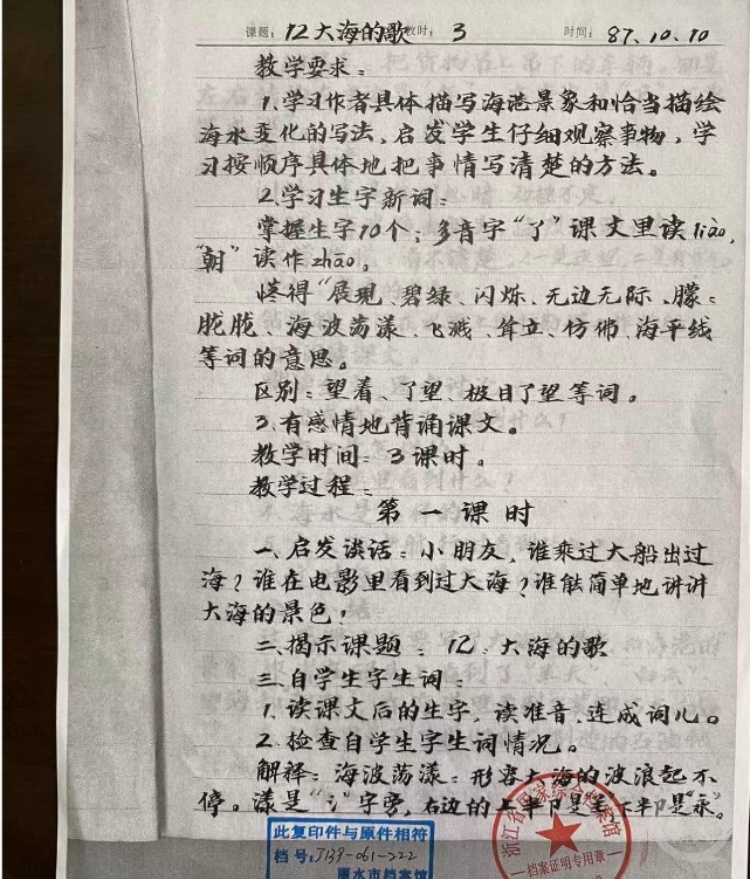 课题：12大海的歌 教时：3 时间：87.10.10
教学要求：
1.学习作者具体描写海港景象和恰当描绘
海水变化的写法，启发学生仔细观察事物，学
习按顺序具体地把事情写清楚的方法。
2.学习生字新词：
掌握生字10个；多音字“了”课文里读liào，
“朝”读作zhāo。
懂得“展现、碧绿、闪烁、无边无际、朦：
胧胧、海波荡漾、飞溅、耸立、仿佛、海平线
等词的意思。
区别：望着、了望、极目了望等词。
3.有感情地背诵课文。
教学时间：3课时。
教学过程：
第一课时
一、启发谈话：小朋友，谁乘过大船出过
海？谁在电影里看到过大海？谁能简单地讲讲
大海的景色！
二、揭示课题：12、大海的歌
三、自学生字生词：
1.读课文后的生字，读准音、连成词儿。
2.检查自学生字生词情况。
解释：海波荡漾：形容大海的波浪起不
停。漾是“氵”字旁，右边的上半卩是“ ”下半卩是“永”。
此复印件与原件相符
档号：J139-061-222
丽水市档案馆
浙江省国家综合档案馆
档案证明专用章